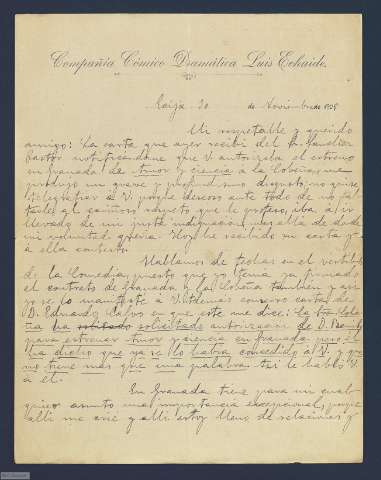 Compañía Cómico Dramática Luis Echaide.
Ecija 30 de Noviembre 1905
Mi respetable y querido
amigo: La carta que ayer recibí del Sr.
Pastor notificándome que V. autorizaba el estreno
en Granada de Amor y ciencia a la Cobeña, me
produjo un grave y profundísimo disgusto; no quise
telegrafiar a V. porque deseoso ante todo de no fal-
tarle al cariñoso respeto que le profeso, iba, a
llevado de mi justa indignación, mas allá de donde
mi voluntad quería. Hoy he recibido su carta y
a ella contesto.
Hablamos de todas en el vestíbulo
de la Comedia, puesto que yo tenía ya firmado
el contrato de Granada y la Cobeña también y así
yo se lo manifesté a V. Además conservo carta de
D. Eduardo Calvo en que este me dice: La
ha solicitado autorización de D. Benito
para estrenar Amor y ciencia en Granada pero el
ha dicho que ya se lo había concedido a V. y que
no tiene más que una palabra. Así le habló V.
a él.
En Granada tiene para mi cual-
quier asunto una importancia excepcional, porque
allí me crié y allí estoy lleno de relaciones y